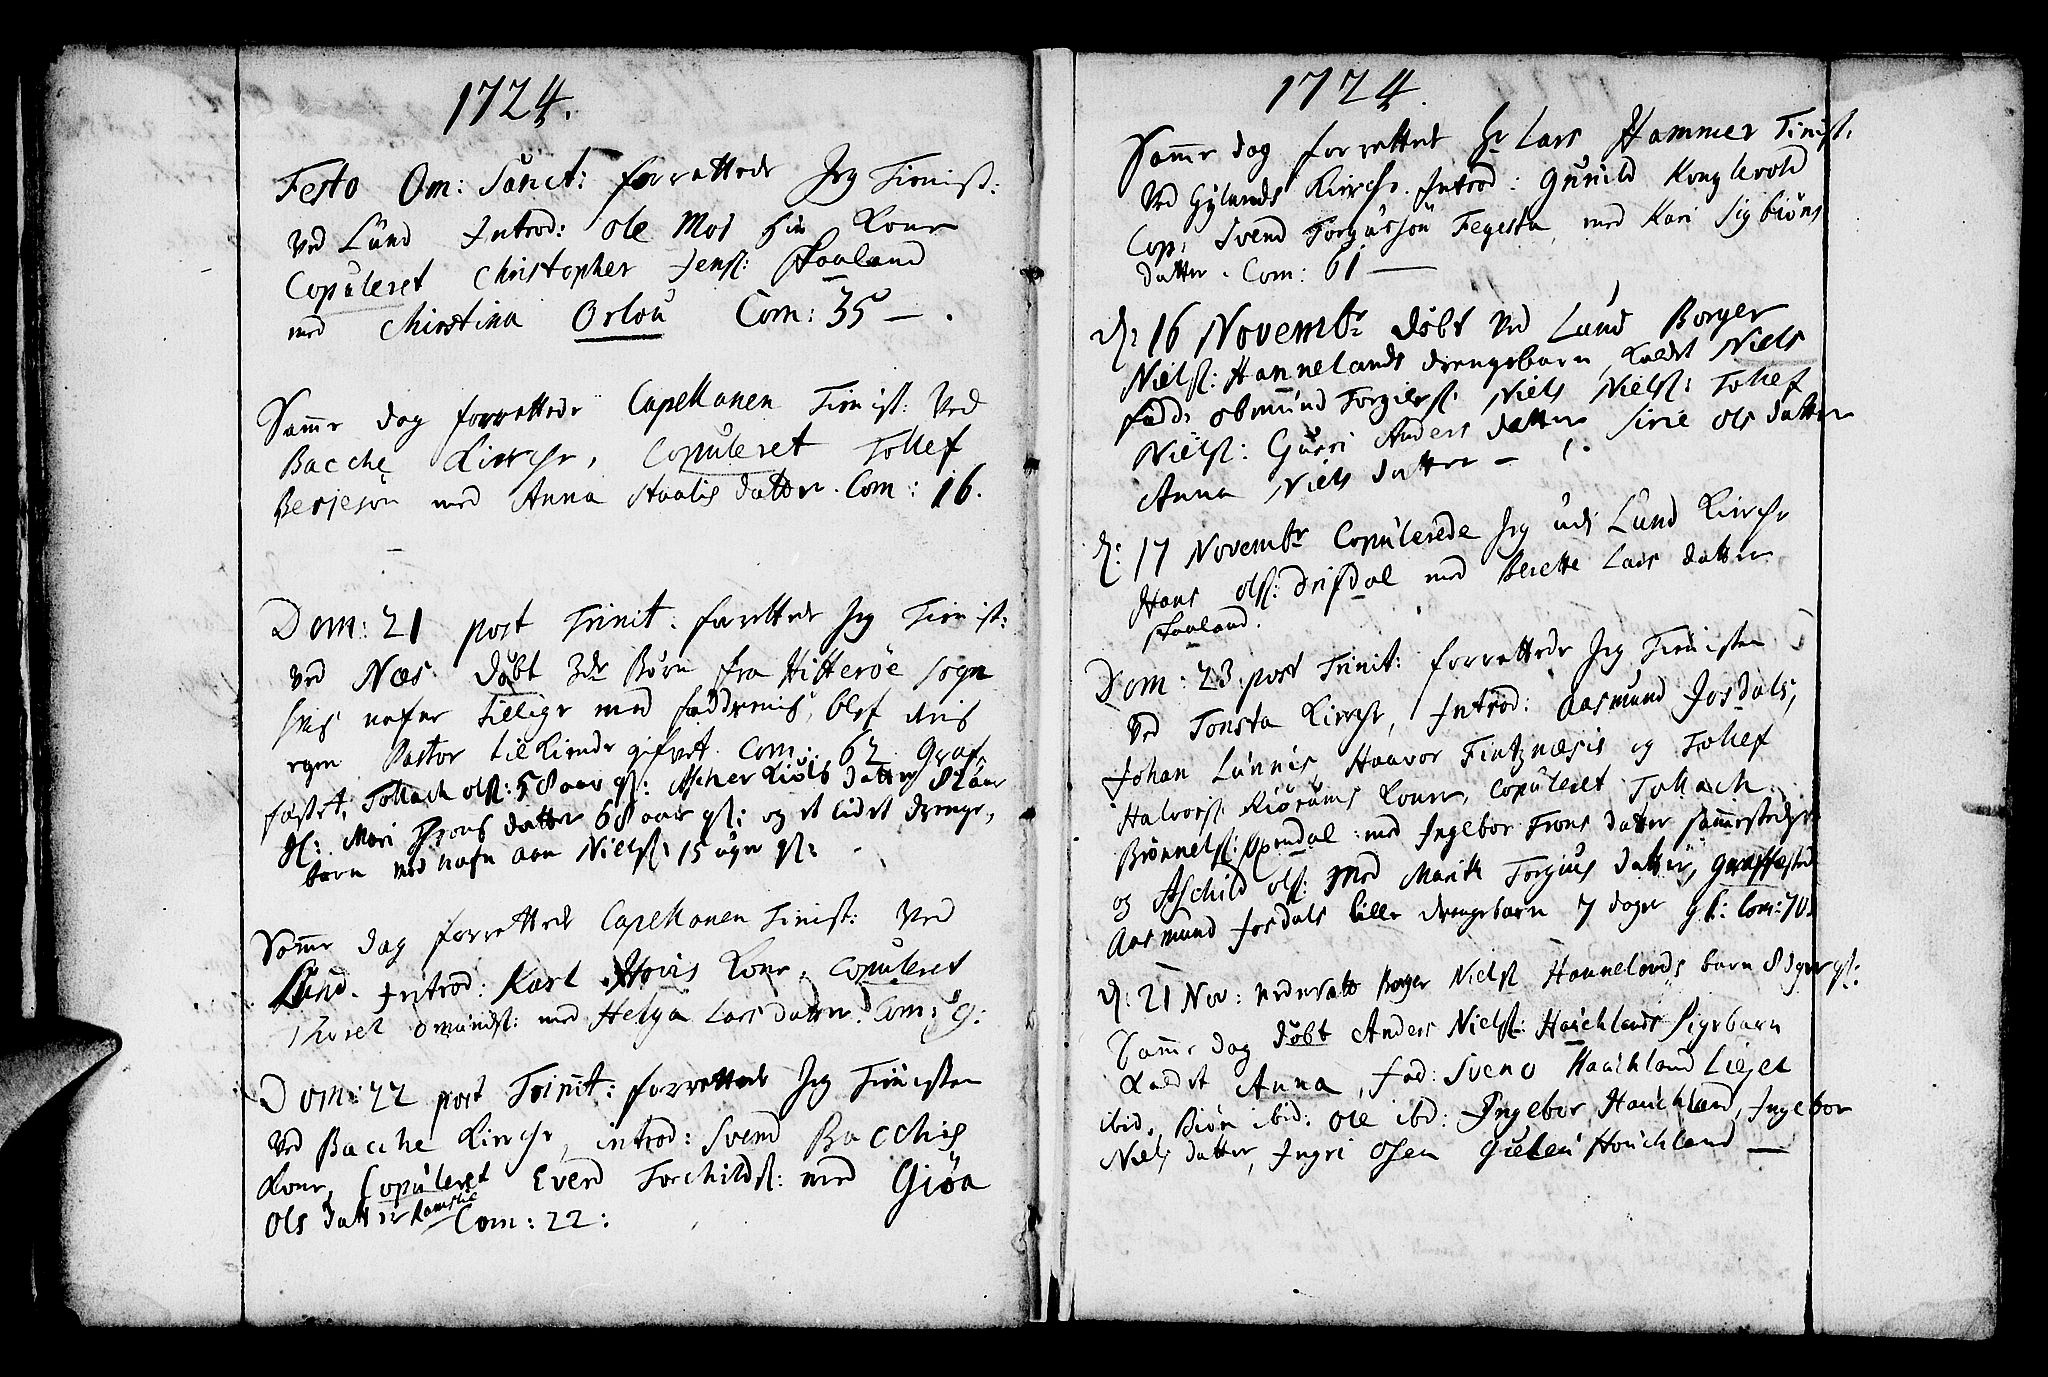 1724.
Festo Om: Sanct: forrettede Jeg Tienist:
ved Lund Introd: Ole Mos hin Kone
Copuleret Christopher Jens: Skaaland
med Christina Orlou Com: 35 — .
Samme dag forrettede Capellanen Tienist: ved
Bacche Kirche, Copuleret Tollef
Berjesøn med Anna Staalis datter. Com: 16.
Dom: 21 post Trinit. forrettede Jeg Tienist:
ved Næs. døbt 3de Børn fra Hitterøe sogn
hvis nafne tillige med faddernis, blef deris
egen Pastor tilkiende gifvet. Com: 62 Graf
fæstet, Tollach ols: 58 aar gl: Ascher Kiøls datter 82 aar
gl: Mari Trons datter 68 aar gl: og et lidet drenge,
barn med nafn Niels: 15 uger gl:
Samme dag forrettede Capellanen Tienist: ved
Lund. Introd: Karl Hovis Kone, Copuleret
Thorel Omunds: med Helga Lars datter. Com: 9:
Dom: 22 post Trinit: forrettede Jeg Tienisten
ved Bacche Kirche, introd: Svend Bacchis
Kone, Copuleret Everd Torchilds: med Giøa
Ols datter Ramslie Com: 22:
1724.
Samme dag forrettet Hr Lars Hammer Tienist:
ved Gylands Kirche. Introd: Gunild Konglevold
Cop: Svend Torgussøn Fegesta, med Kari Sigbiøns
datter. Com: 61 —
d: 16 Novembr døbt ved Lund Borger
Niels: Hannelands drengebarn, kaldet Niels
fadd: Omund Torgiers: Niels Niels: Tollef
Niels: Guri Anders datter Sirie Ols datter
Anna Niels datter —
d: 17 Novembr Copulerede Jeg udi Lund Kirche
Hans Ols: Drifdal med Berette Lars datter
Skaaland.
Dom: 23. post Trinit: forrettede Jeg Tienisten
ved Tonsta Kirche, Introd: Aasmund Josdals,
Johan Lunnis, Haavor Fintznæsis og Tollef
Halvors: Kone, Copuleret Tollach
Brønnels: Opendal med Ingebor Trons datter sammestedz
og Aschild Ols: med Marith Torgius datter, Grafffæstet
Aasmund Josdals lille drengebarn 7 dager gl: Com: 70.
d: 21 Nov: nedersatt Borger Niels: Hannelands barn 8 dager gl:
Samme dag døbt Anders Niels: Hauchlands Pigebarn
kaldet Anna, fad: Svend Hauchland
ibid, Biøn ibid: Ole ibd: Ingebor Hauchland, Ingebor
Niels datter, Ingri Osen Hauchland —